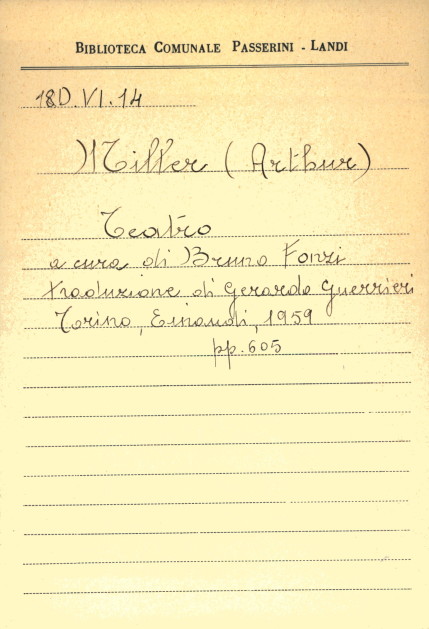 BIBLIOTECA COMUNALE PASSERINI - LANDI
18D.VI.14
Miller (Arthur)
Teatro
a cura di Bruno Fonzi
traduzione di Gerardo Guerrieri
Torino, Einaudi, 1959
pp. 605